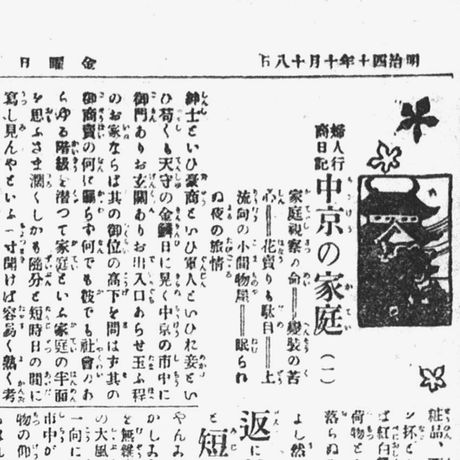 明治四十年十月十八日
金曜日
婦人行
商日記
中京の家庭(一)
家庭視察の命══變裝の苦
心══花賣りも駄目══上
流向の小間物屋══眠られ
ぬ夜の旅情
紳士といひ豪商といひ軍人といひお妾とい
ひ苟くも天守の金鱗日に晃く中京の市中に
御門ありお玄關ありお出入口あらせ玉ふ程
のお家ならば其の御位の高下を問はず其の
御商賣の何に關らず何でも彼でも社會のあ
らゆる階級を潜つて家庭といふ家庭の半面
を思ふさま濶くしかも隨分と短時日の間に
寫し見んやといふ一寸聞けば容易く熟く考
粧品、
ン杯と
ば紅白
荷物と
落らぬ
よし然
返に
短
と
やんみ
かしみ
を無雜
の大風
一向に
市中が
物の仰